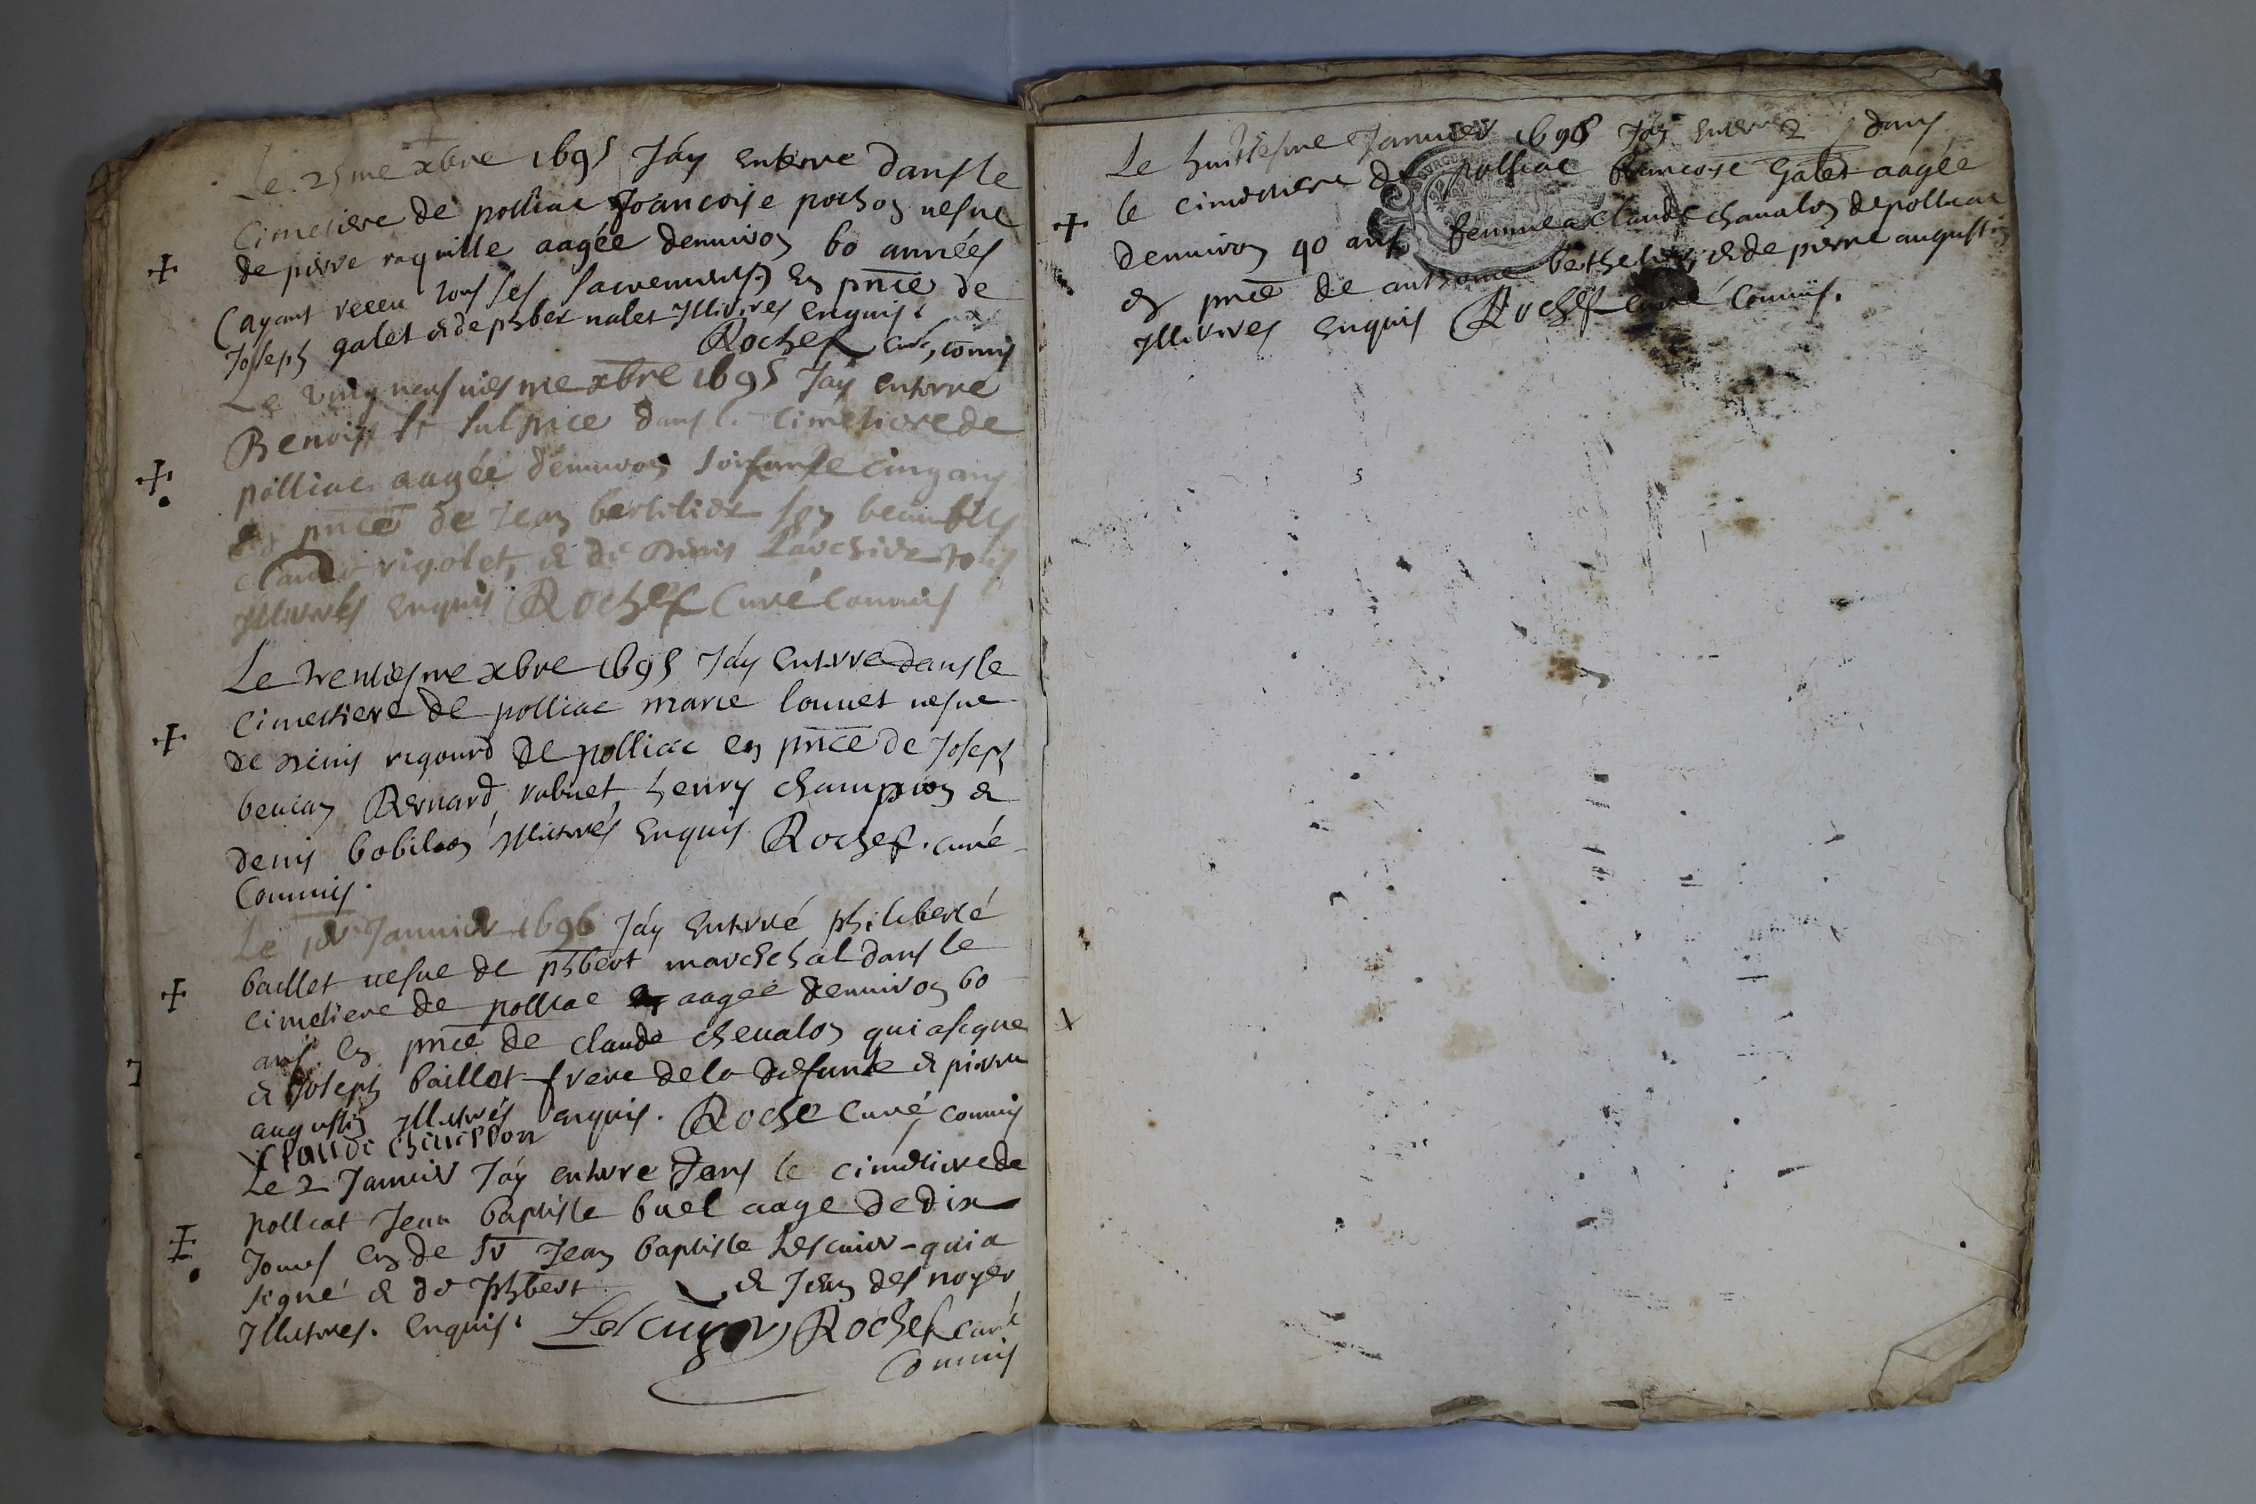 Le 25me xbre 1695 Jáy enterre dans le
Cimetiere de polliac francoise pochon uefue
de pierre raquille aagée denuiron 60 années
(ayant receu tous ses sacrements) en pnce de
Joseph galet & de phber nalet Illitires enquis.
Rochef curé, comis
Le vintg neufuiesme xbre 1695 Jáy enterré
Benoist st sulpice dans le Cimetiere de
polliac aagée denuiron soisante cinq ans
en pnce de Jean berthelier son beaufils
claude rigolet, & de Denis
Illitirés enquis Rochef Curé Commis
Le trentiesme xbre 1695 Jáy enterre dans le
Cimettiere de polliac marie louuet uefue
de Denis rigourd de polliac en pnce de Joseph
beucan Bernard robuet, henry champion &
denis bobilion Illitirés enquis. Rochef. curé
Commis.
Le 1er Januier 1696 Jáy enterré philiberte
baillet uefue de phbert marechehal dans le
cimetiere de polliac aagée denuiron 60
ans. en pnce de claude cheualon qui a signe
& Joseph baillet frere de la defunte & pierre
augustin Illitirés enquis. Roche Curé, commis
Claude
Le 2 Januier Jáy enterre dans le cimetiere de
polliat Jean baptiste buel aage de dix
Jours en de sr Jean baptiste Lescuier qui a
signé & de phbert & Jean des noyer
Illitires. enquis. Lescuyer Rochef curé
Commis
Le huittiesme Januier 1696 Jáy enterre dans
le cimettiere de polliac francoise Galet aagée
denuiron 40 ans femme a claude chaualon de polliac
en pnce de anthoine berthelier & de pierre augustin
Illitires enquis Rochef curé Commis.